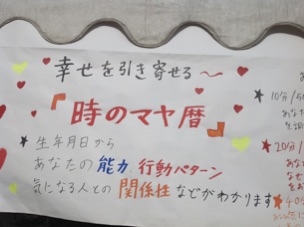 幸せを引き寄せる〜
『時のマヤ暦』
★生年月日から
あなたの能力 行動パターン
気になる人との関係性などがわかります
★10分/
あな
★20分/
あ
な
を
★40分